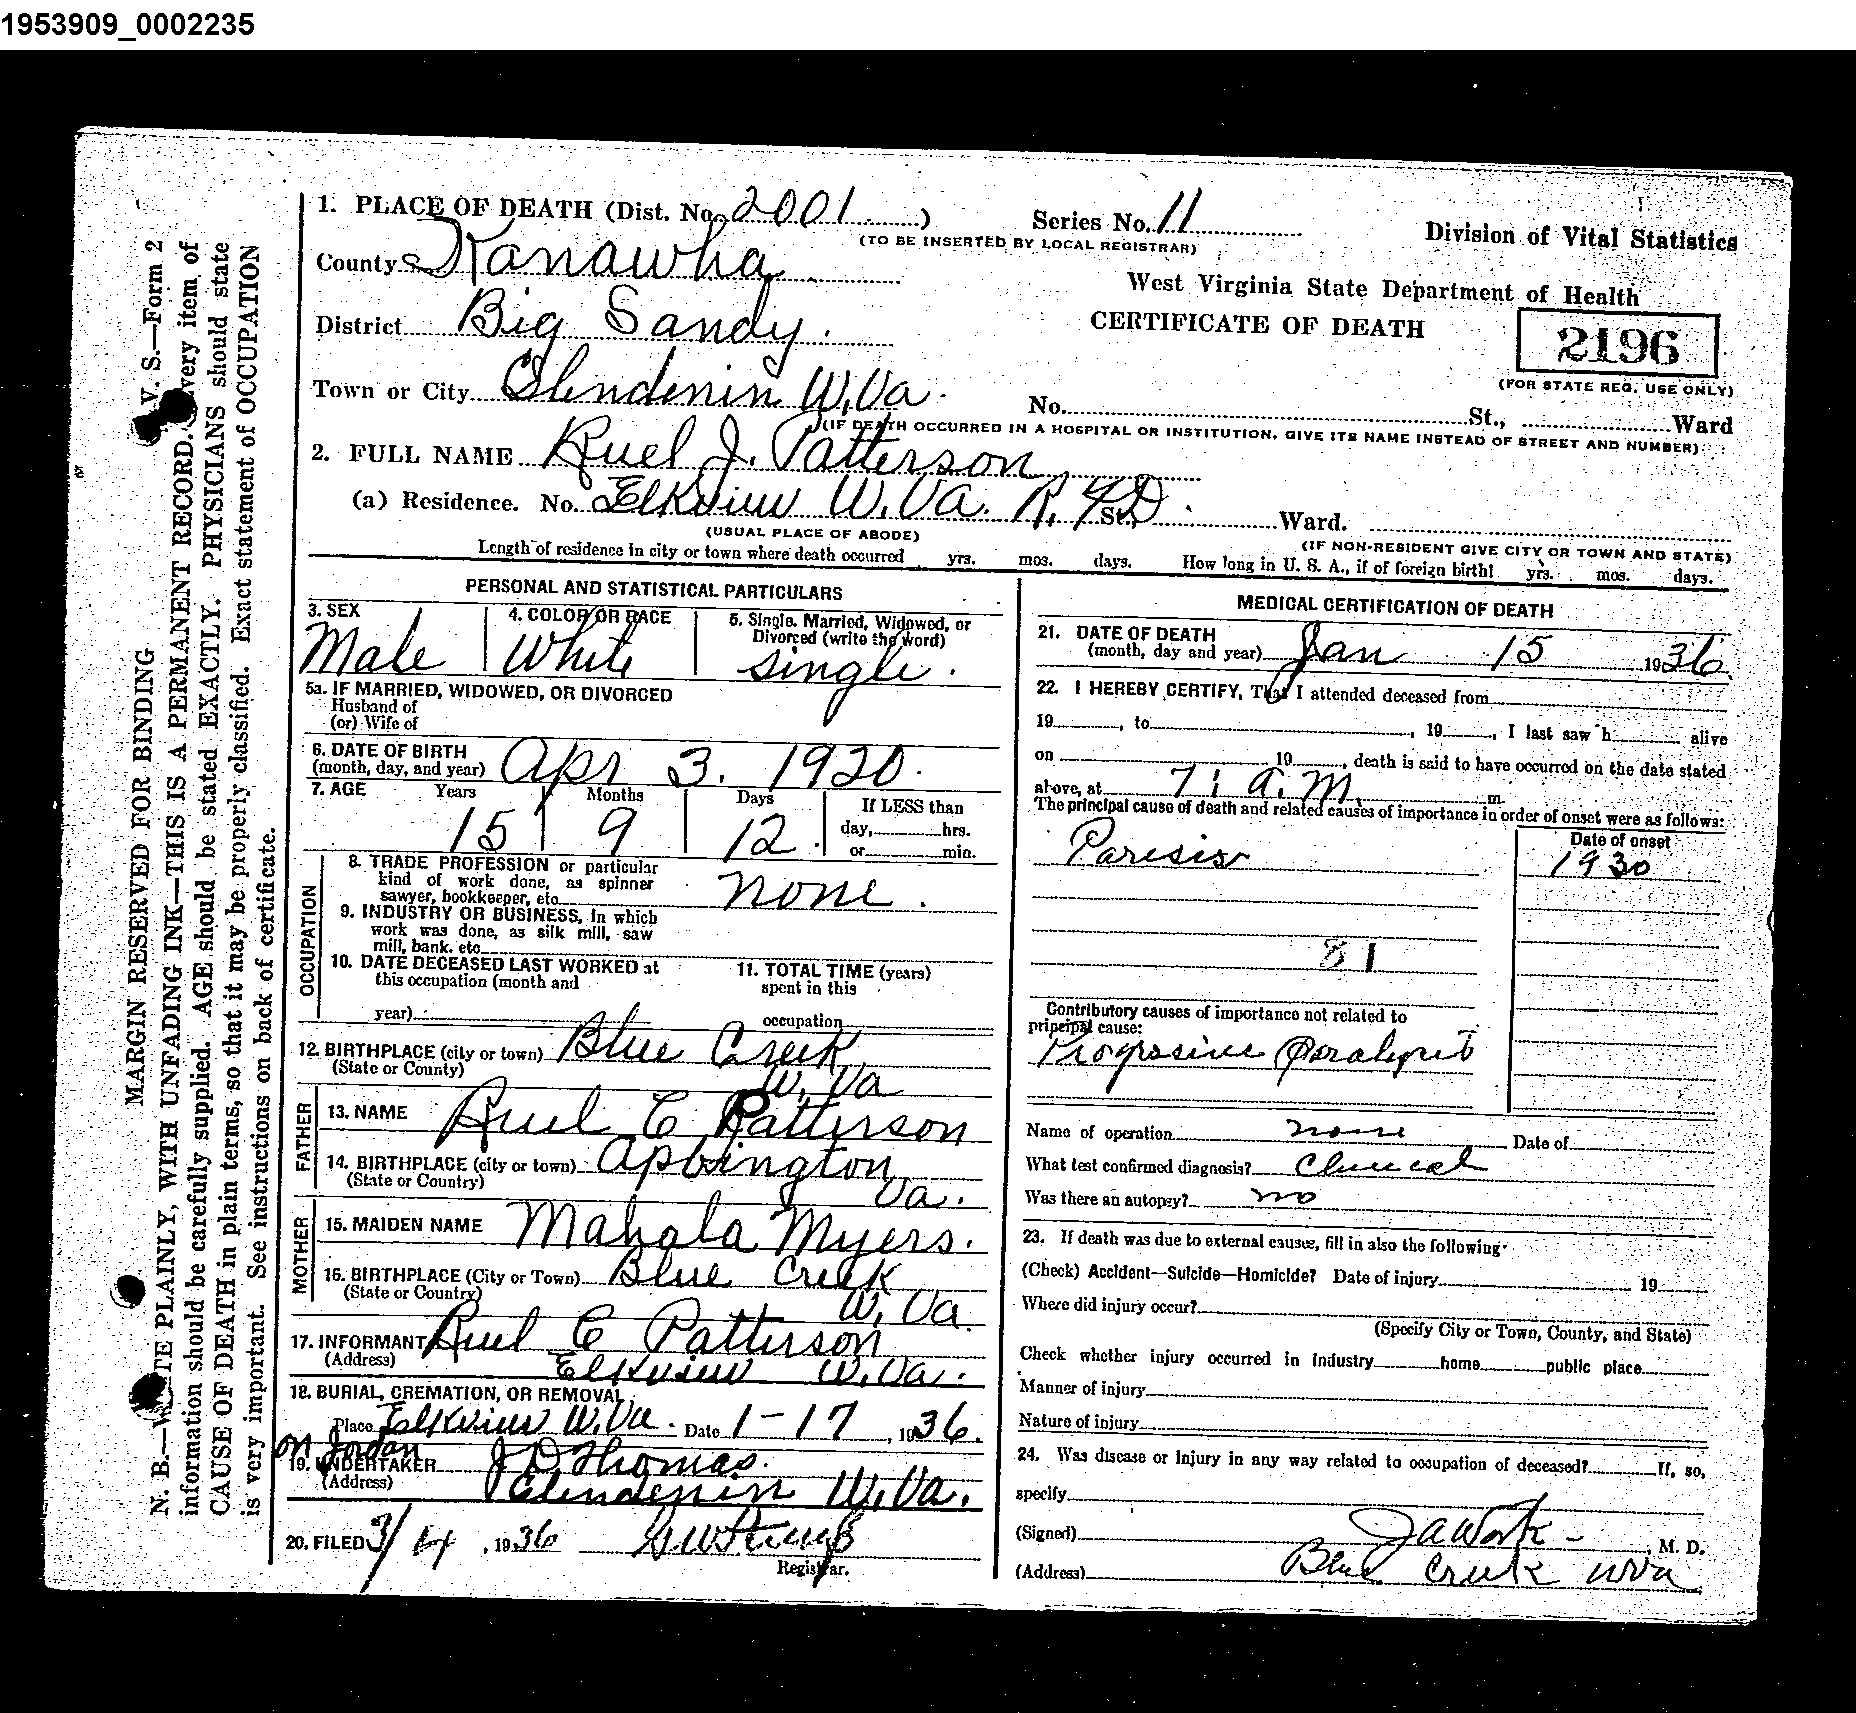 1953909_0002235
V. S.—Form 2
MARGIN RESERVED FOR BINDING
N. B.—WRITE PLAINLY, WITH UNFADING INK—THIS IS A PERMANENT RECORD. Every item of
information should be carefully supplied. AGE should be stated EXACTLY. PHYSICIANS should state
CAUSE OF DEATH in plain terms, so that it may be properly classified. Exact statement of OCCUPATION
is very important. See instructions on back of certificate.
1. PLACE OF DEATH (Dist. No. 2001 ) Series No. 11
(TO BE INSERTED BY LOCAL REGISTRAR)
Division of Vital Statistics
County Kanawha
West Virginia State Department of Health
District Big Sandy.
CERTIFICATE OF DEATH
2196
(FOR STATE REG. USE ONLY)
Town or City Clendenin W.Va.
No. St., Ward
(IF DEATH OCCURRED IN A HOSPITAL OR INSTITUTION, GIVE ITS NAME INSTEAD OF STREET AND NUMBER)
2. FULL NAME Ruel J. Patterson
(a) Residence. No. Elkview W.Va. R.F.D. St., Ward.
(USUAL PLACE OF ABODE) (IF NON-RESIDENT GIVE CITY OR TOWN AND STATE)
Length of residence in city or town where death occurred yrs. mos. days. How long in U. S. A., if of foreign birth? yrs. mos. days.
PERSONAL AND STATISTICAL PARTICULARS
3. SEX
Male
4. COLOR OR RACE
White
5. Single. Married, Widowed, or
Divorced (write the word)
single.
5a. IF MARRIED, WIDOWED, OR DIVORCED
Husband of
(or) Wife of
6. DATE OF BIRTH
(month, day, and year) Apr 3. 1920.
7. AGE Years Months Days If LESS than
15 9 12. day, hrs.
or min.
OCCUPATION
8. TRADE PROFESSION or particular
kind of work done, as spinner
sawyer, bookkeeper, etc none.
9. INDUSTRY OR BUSINESS, in which
work was done, as silk mill, saw
mill, bank. etc.
10. DATE DECEASED LAST WORKED at
this occupation (month and
year)
11. TOTAL TIME (years)
spent in this
occupation
12. BIRTHPLACE (city or town) Blue Creek
(State or County) W. Va
FATHER
13. NAME Ruel C Patterson
14. BIRTHPLACE (city or town) Apbington
(State or Country) Va.
MOTHER
15. MAIDEN NAME Mahala Myers.
16. BIRTHPLACE (City or Town) Blue Creek
(State or Country) W. Va.
17. INFORMANT Ruel C Patterson
(Address) Elkview W.Va.
18. BURIAL, CREMATION, OR REMOVAL
Place Elkview W.Va. Date 1-17, 1936.
on Jordan
19. UNDERTAKER J D Thomas.
(Address) Clendenin W.Va.
20. FILED 3/4, 1936
Registrar.
MEDICAL CERTIFICATION OF DEATH
21. DATE OF DEATH
(month, day and year) Jan 15 1936.
22. I HEREBY CERTIFY, That I attended deceased from
19 , to , 19 , I last saw h alive
on 19 , death is said to have occurred on the date stated
above, at 7: a.m. m.
The principal cause of death and related causes of importance in order of onset were as follows:
Date of onset
Parisis 1930
81
Contributory causes of importance not related to
principal cause:
Progressive Paralysis
Name of operation none Date of
What test confirmed diagnosis? Clinical
Was there an autopsy? no
23. If death was due to external causes, fill in also the following:
(Check) Accident—Suicide—Homicide? Date of injury 19
Where did injury occur?
(Specify City or Town, County, and State)
Check whether injury occurred in industry home public place
Manner of injury
Nature of injury
24. Was disease or injury in any way related to occupation of deceased? If, so,
specify
(Signed) J A Work - , M. D.
(Address) Blue Creek W Va